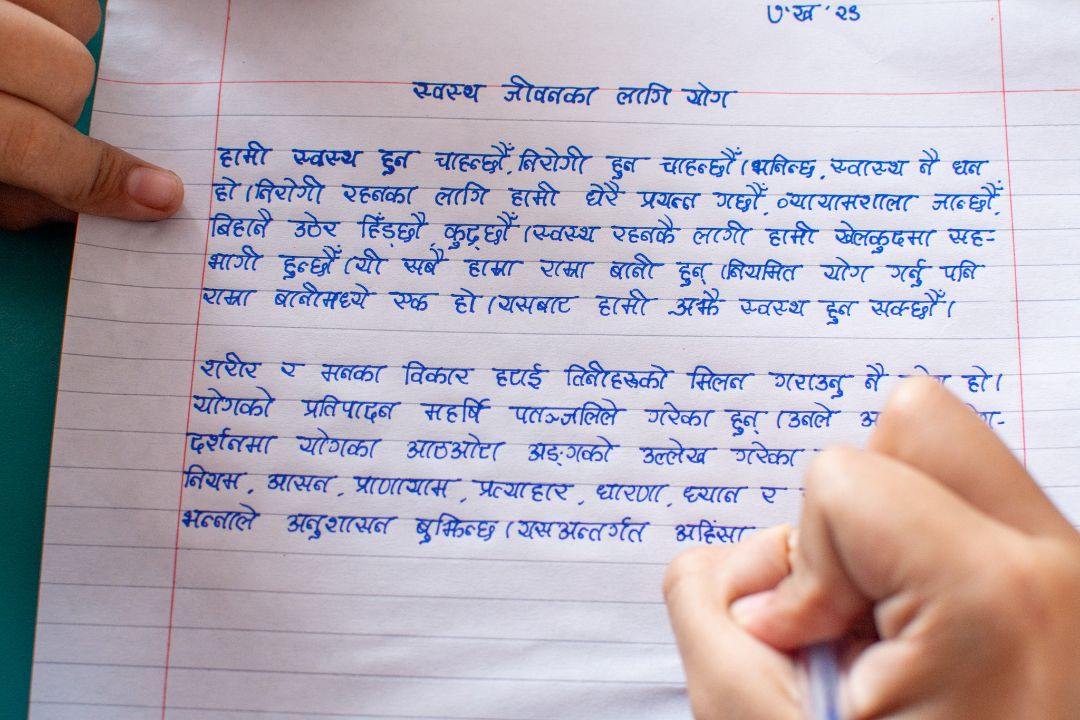 ७.ख.२३
स्वस्थ जीवनका लागि योग
हामी स्वस्थ हुन चाहन्छौँ, निरोगी हुन चाहन्छौँ । भनिन्छ, स्वास्थ नै धन
हो । निरोगी रहनका लागि हामी धेरै प्रयत्न गर्छौँ, व्यायामशाला जान्छौँ,
बिहानै उठेर हिँड्छौँ, कुद्छौँ । स्वस्थ रहनकै लागी हामी खेलकुदमा सह-
भागी हुन्छौँ । यी सबै हाम्रा राम्रा बानी हुन् । नियमित योग गर्नु पनि
राम्रा बानीमध्ये एक हो । यसबाट हामी अझै स्वस्थ हुन सक्छौँ ।
शरीर र मनका विकार हटाई तिनीहरूको मिलन गराउनु नै हो ।
योगको प्रतिपादन महर्षि पतञ्जलिले गरेका हुन् । उनले
दर्शनमा योगका आठओटा अङ्गको उल्लेख गरेका
नियम, आसन, प्राणायाम, प्रत्याहार, धारणा, ध्यान र
भन्नाले अनुशासन बुझिन्छ । यसअन्तर्गत अहिंसा